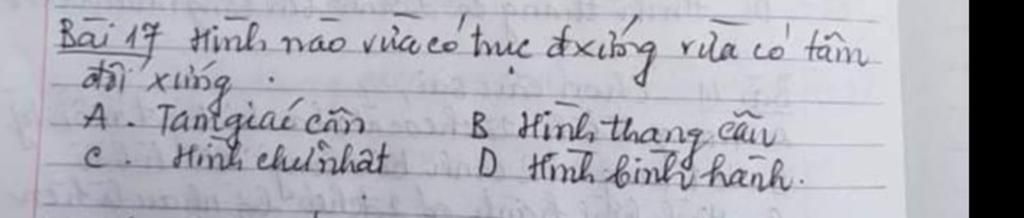 Bài 17 Hình nào vừa có trục đxứng vừa có tâm
đối xứng.
A. Tam giác cân B Hình thang cân
C. Hình chữ nhật D Hình bình hành.